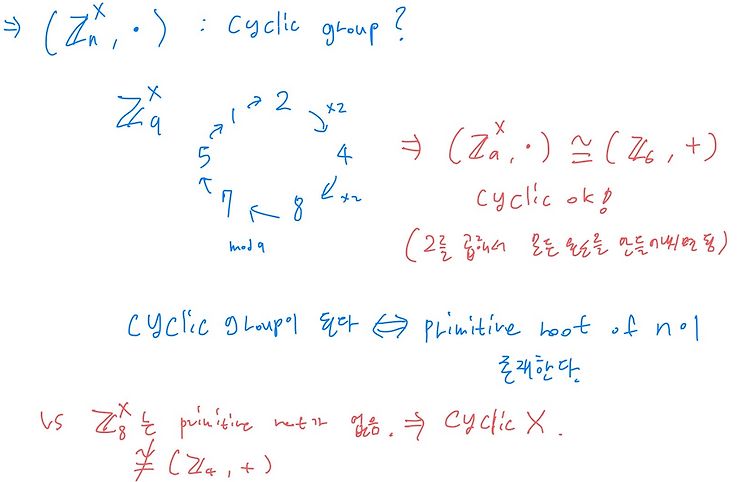 ⇒ (ℤₙˣ, ·) : cyclic group ?
ℤ₉ˣ
1 → 2 ×2
5 4
7 ← 8 ×2
mod 9
⇒ (ℤ₉ˣ, ·) ≅ (ℤ₆, +)
cyclic ok!
(2를 곱해서 모든 원소를 만들어내면 됨)
cyclic group이 된다 ⇔ primitive root of n이
존재한다.
vs ℤ₈ˣ는 primitive root가 없음. ⇒ cyclic X.
≇ (ℤ₄, +)